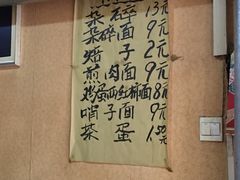 杂碎 13元
杂碎面 9元
焙子 2元
煎肉面 9元
鸡蛋西红柿面 8元
哨子面 9元
茶蛋 1.50元